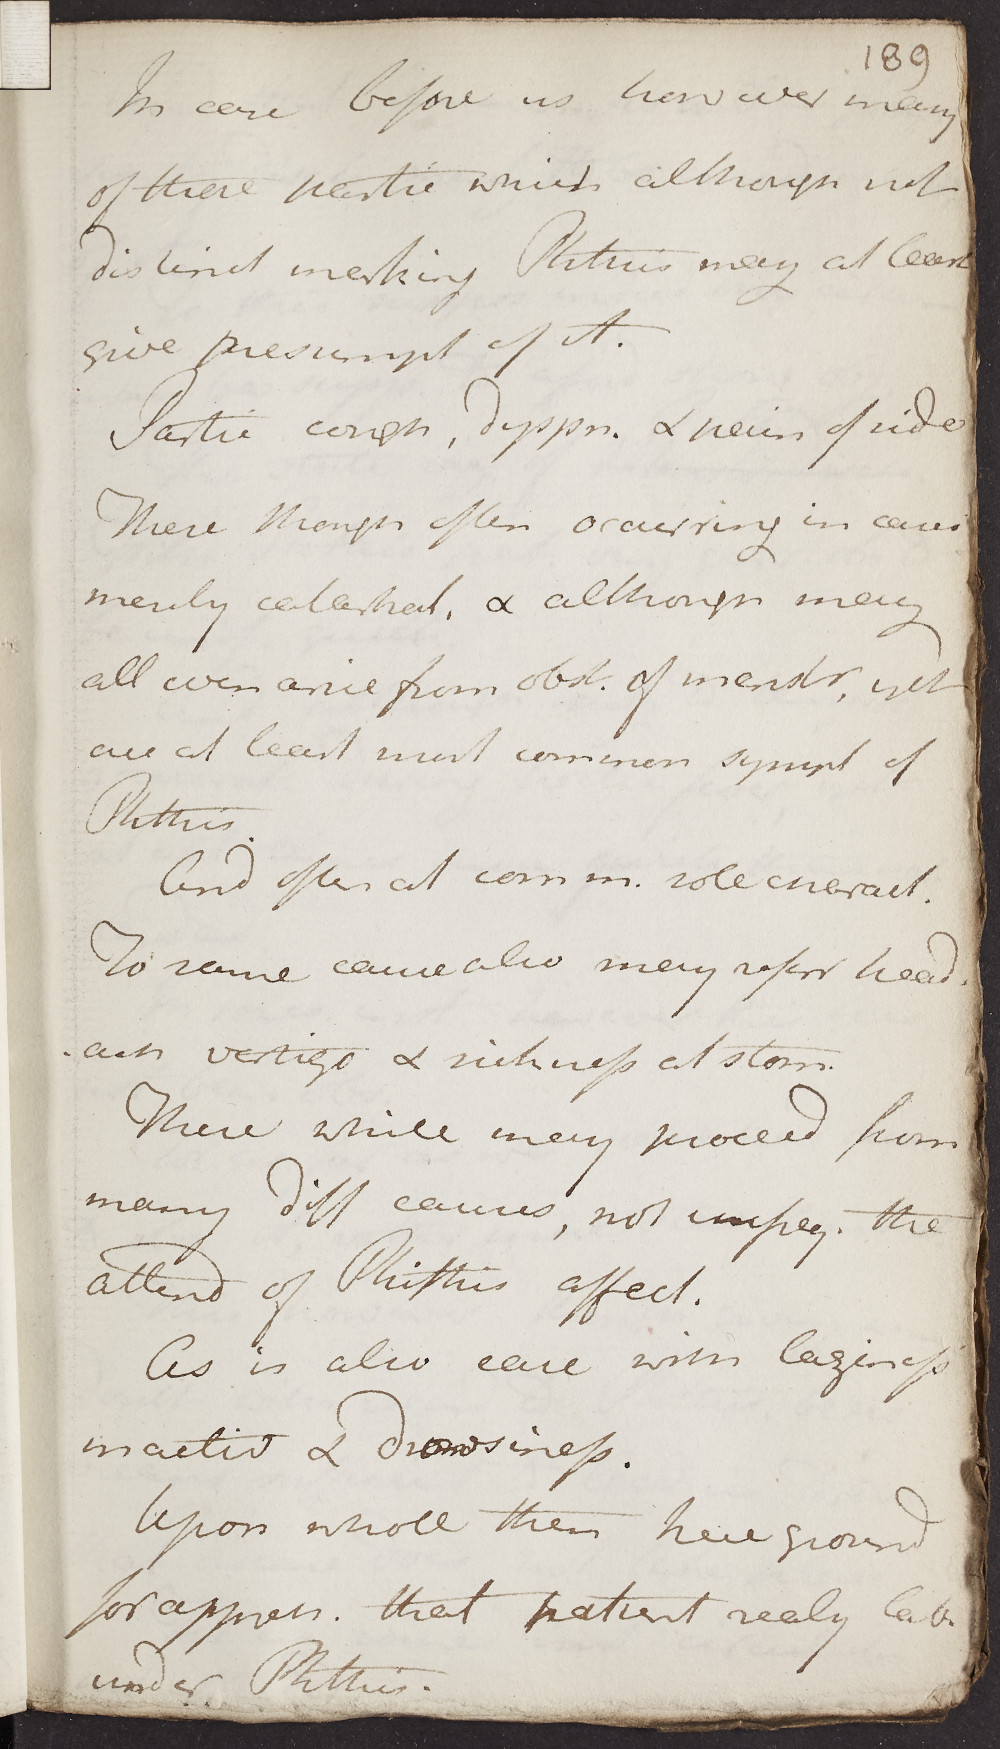 189
In case before us however many
of these partic which although not
distinct marking Phthisis may at least
give presumpt of it.
Partic cough, dyspn. & pain of side
These though often occurring in cases
merely catarrhal, & although may
all even arise from obst. of menstr, yet
are at least most common sympt of
Phthisis.
And often at comm. sole charact.
To same cause also may refer head-
-ach vertigo & sickness at stom.
These while may proceed from
many diff causes, not unfreq. the
attend of Phthisis affect.
As is also case with laziness
inactiv & drowsiness.
Upon whole then have ground
for appreh. that patient realy lab.
under Phthisis.